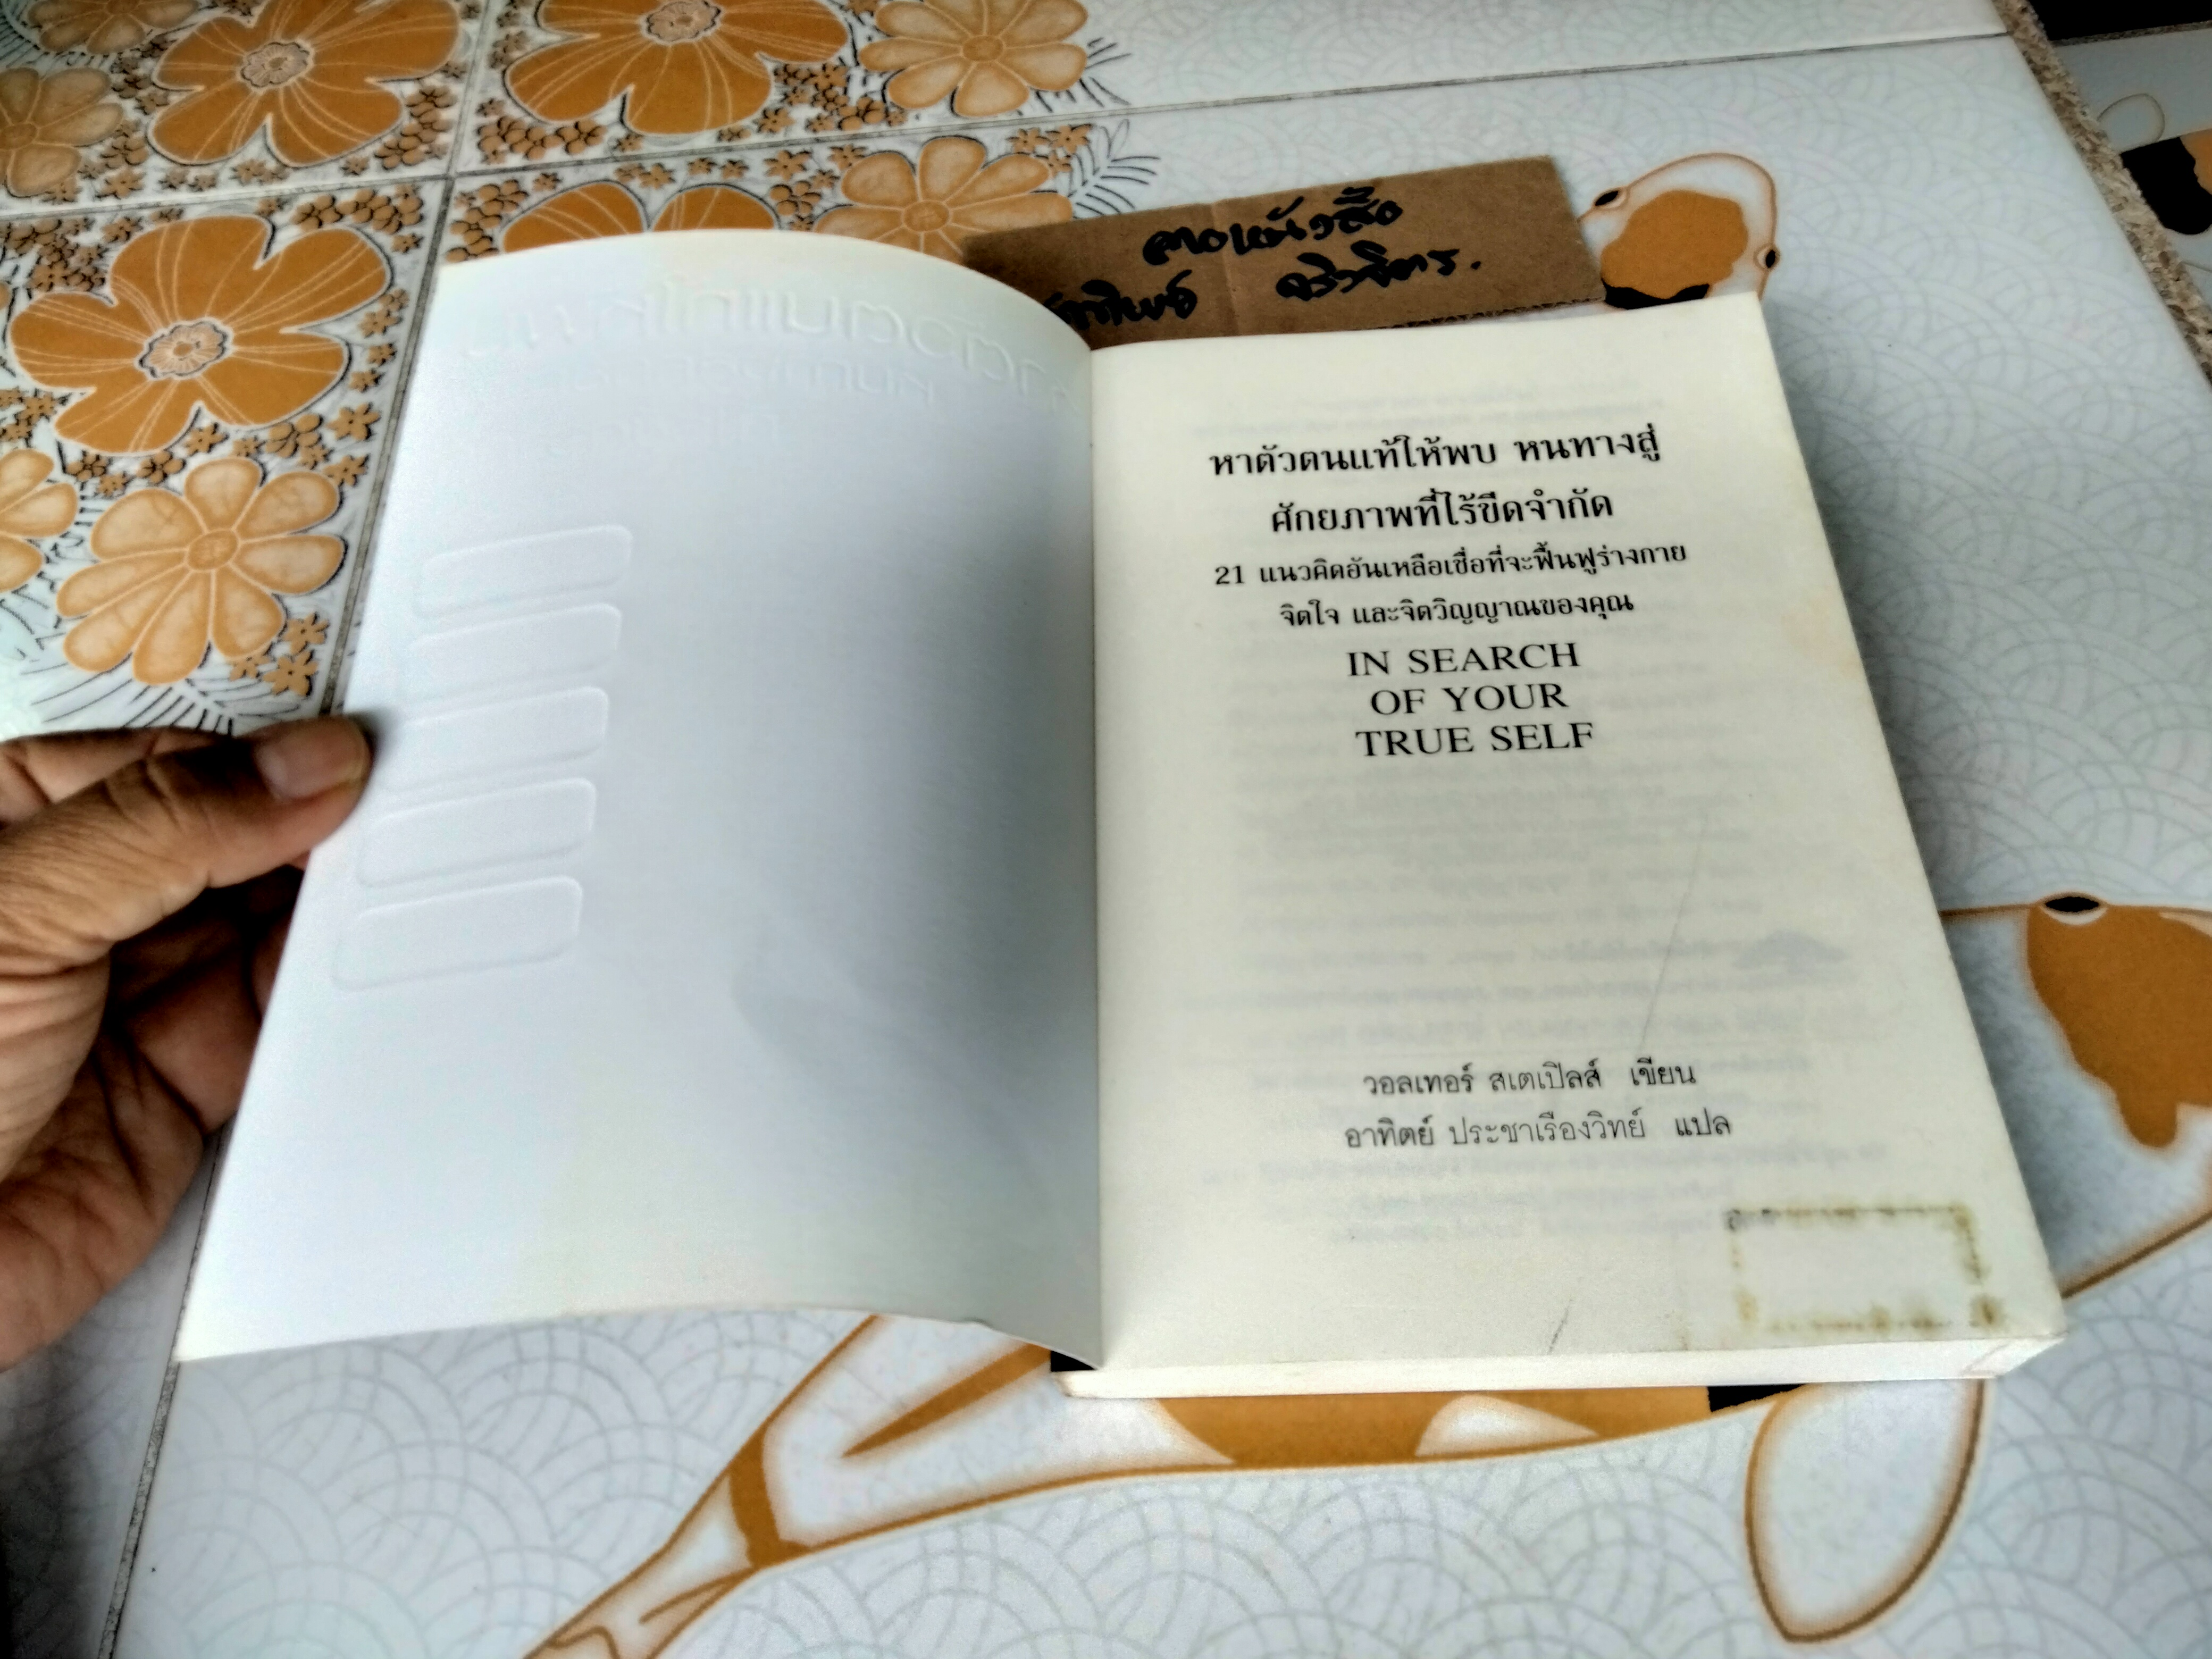 หาตัวตนแท้ให้พบ หนทางสู่
ศักยภาพที่ไร้ขีดจำกัด
21 แนวคิดอันเหลือเชื่อที่จะฟื้นฟูร่างกาย
จิตใจ และจิตวิญญาณของคุณ
IN SEARCH
OF YOUR
TRUE SELF
วอลเทอร์ สเตเปิลส์ เขียน
อาทิตย์ ประชาเรืองวิทย์ แปล